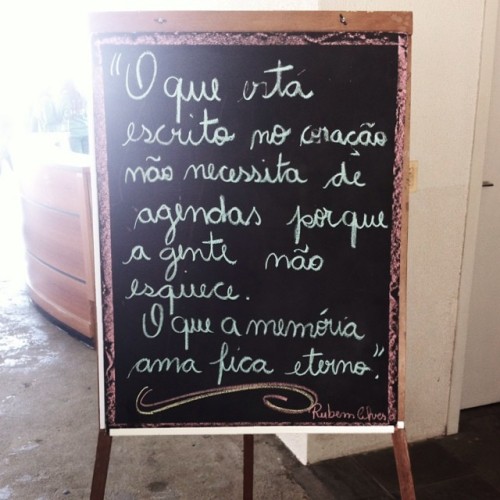 "O que está
escrito no coração
não necessita de
agendas porque
a gente não
esquece.
O que a memória
ama fica eterno."
Rubem Alves